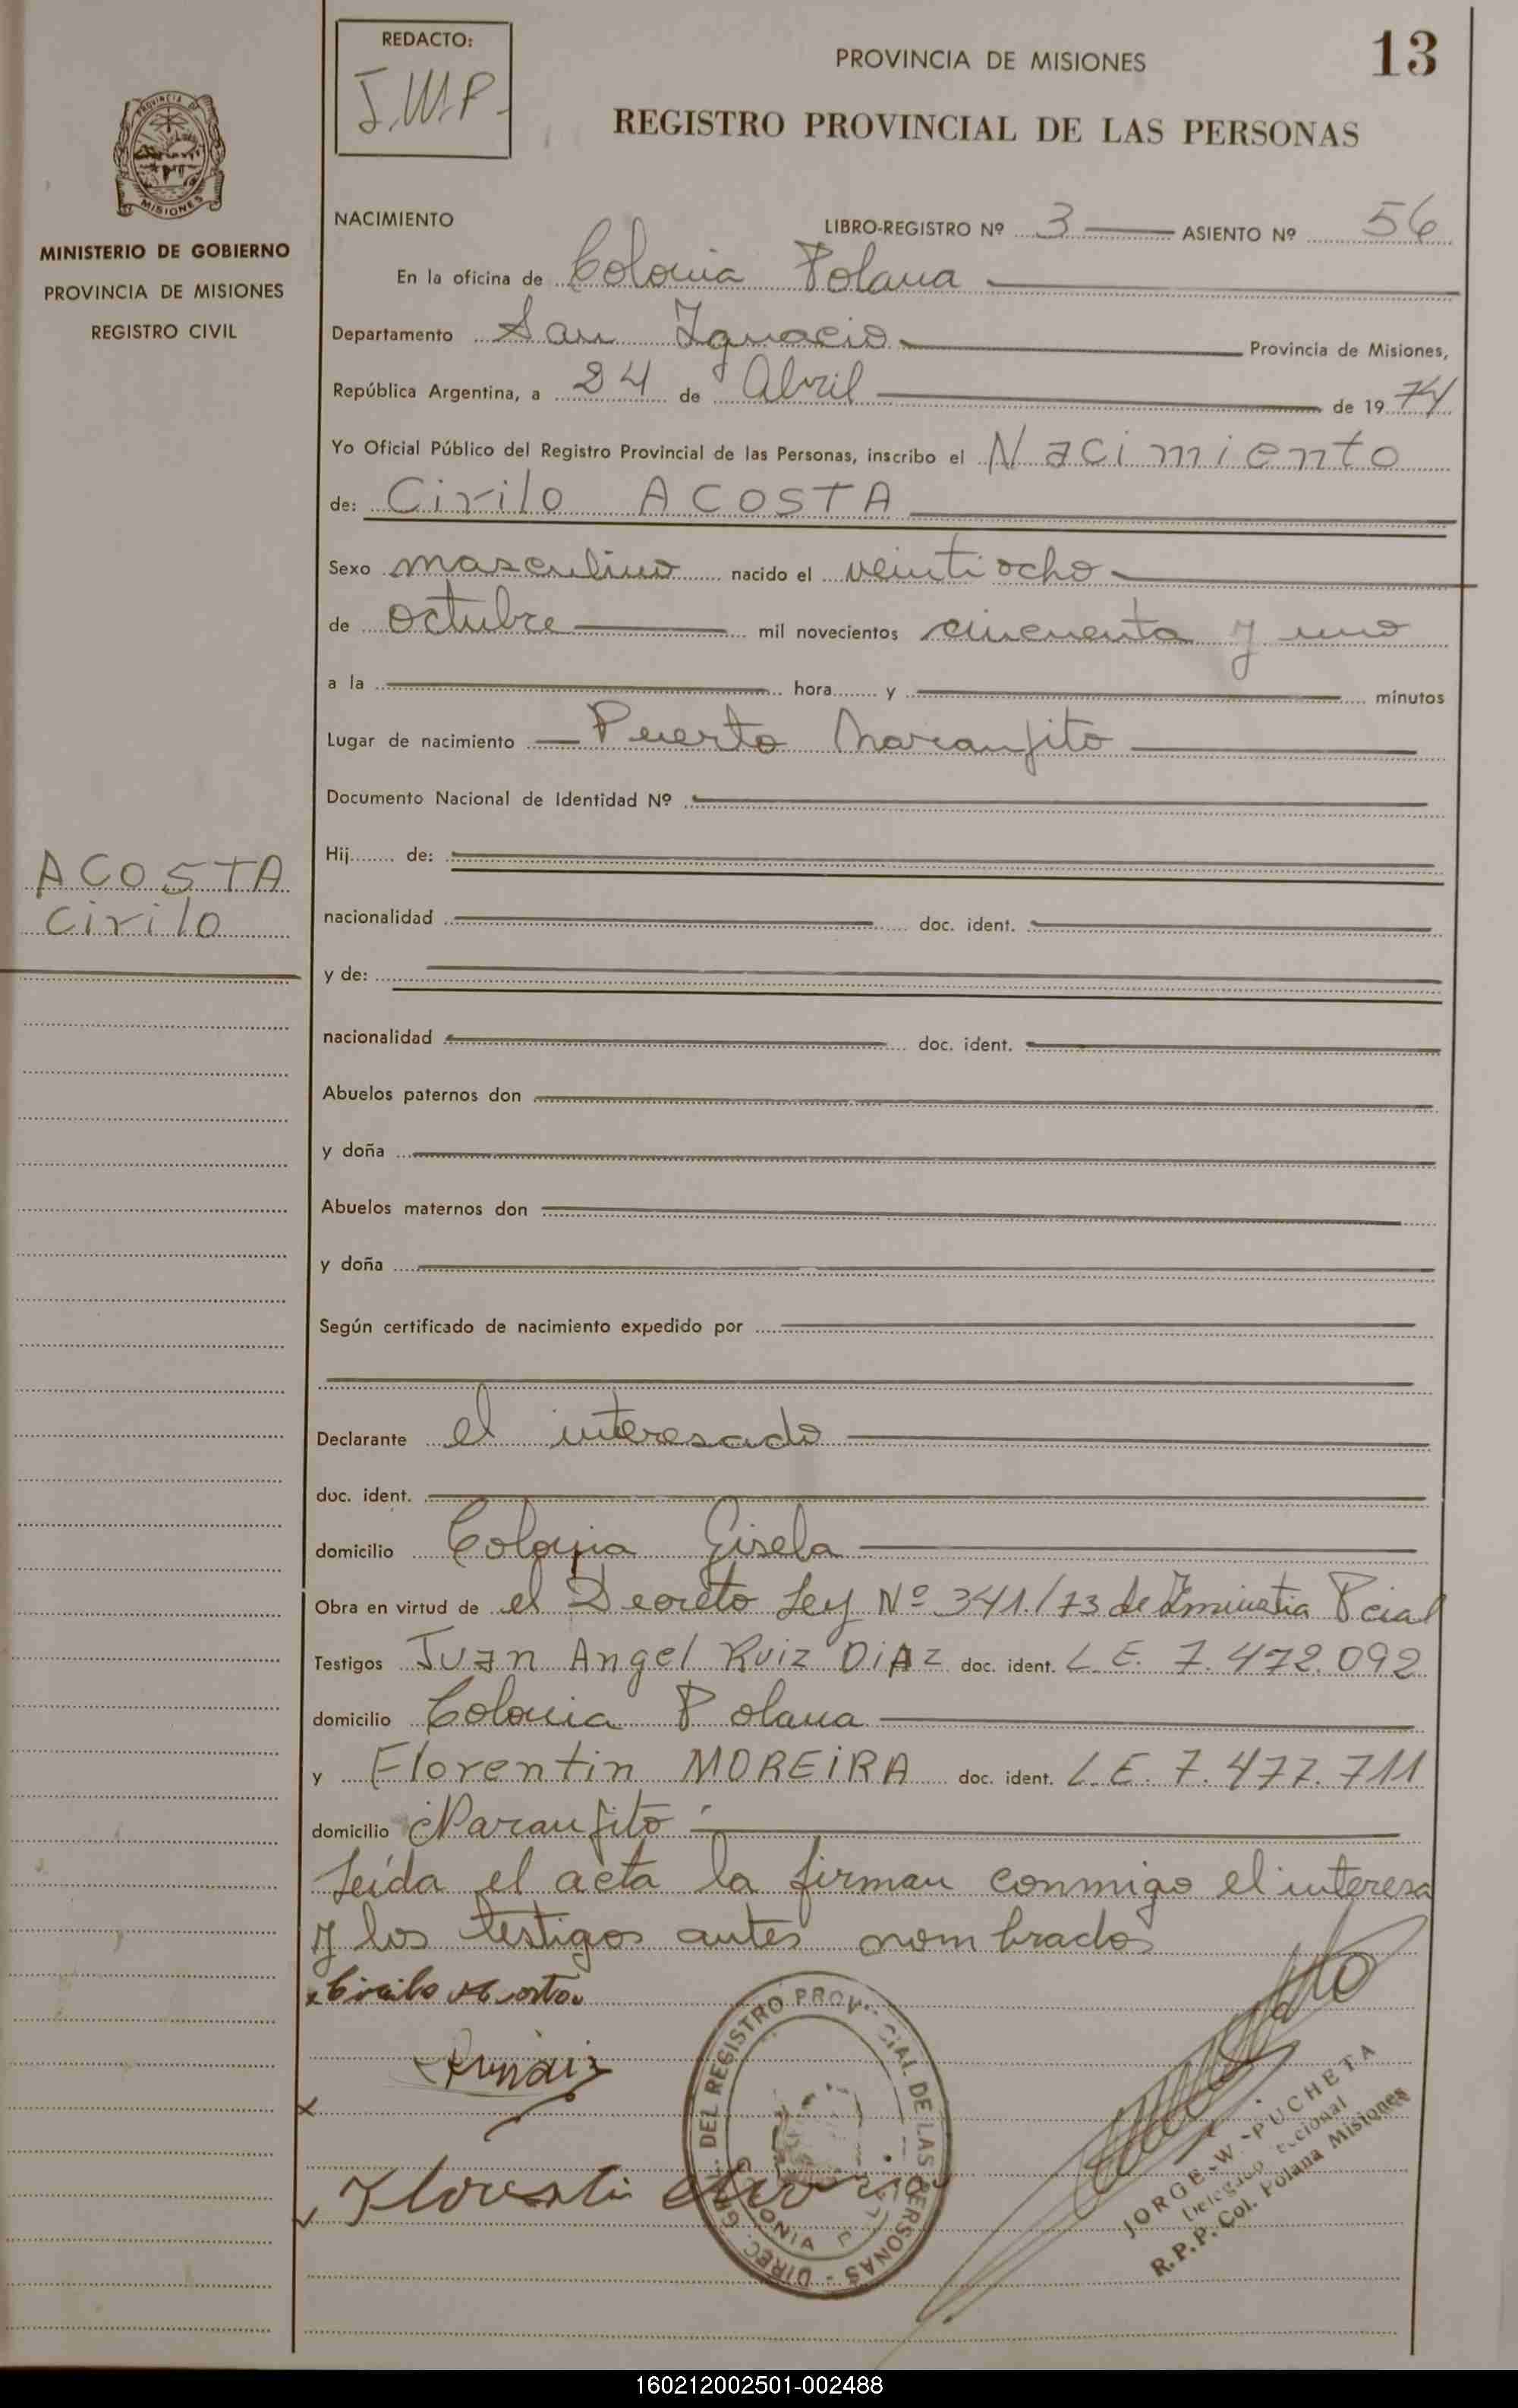 REDACTO:
J.W.P.
PROVINCIA DE MISIONES
13
REGISTRO PROVINCIAL DE LAS PERSONAS
PROVINCIA DE
MISIONES
MINISTERIO DE GOBIERNO
PROVINCIA DE MISIONES
REGISTRO CIVIL
NACIMIENTO
LIBRO-REGISTRO Nº 3 ASIENTO Nº 56
En la oficina de Colonia Polana
Departamento San Ignacio Provincia de Misiones,
República Argentina, a 24 de Abril de 1974
Yo Oficial Público del Registro Provincial de las Personas, inscribo el Nacimiento
de: Cirilo ACOSTA
Sexo masculino nacido el veintiocho
de octubre mil novecientos cincuenta y uno
a la hora y minutos
Lugar de nacimiento Puerto Naranjito
Documento Nacional de Identidad Nº
ACOSTA
Cirilo
Hij de:
nacionalidad doc. ident.
y de:
nacionalidad doc. ident.
Abuelos paternos don
y doña
Abuelos maternos don
y doña
Según certificado de nacimiento expedido por
Declarante el interesado
doc. ident.
domicilio Colonia Gisela
Obra en virtud de el Decreto Ley Nº 341/73 de Pcial
Testigos Juan Angel Ruiz DiAz doc. ident. L.E. 7.472.092
domicilio Colonia Polana
y Florentin MOREiRA doc. ident. L.E. 7.477.711
domicilio Naranjito
Leída el acta la firman conmigo el interesado
y los testigos antes nombrados
x Cirilo Acosta
DIREC. GRAL. DEL REGISTRO PROVINCIAL DE LAS PERSONAS
COLONIA
JORGE W. PUCHETA
Delegado
R.P.P. Col. Polana Misiones
160212002501-002488